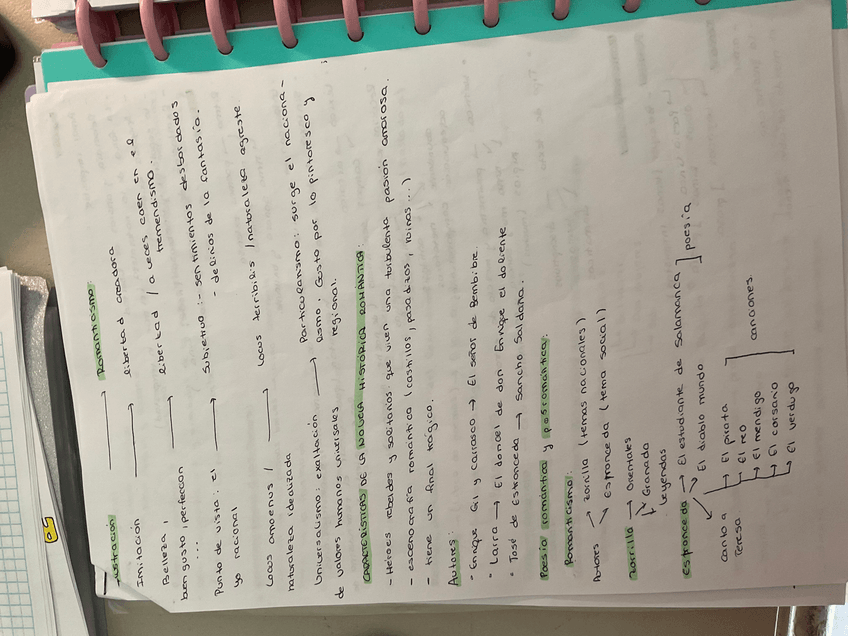 Ilustración → Romanticismo:
Imitación → libertad creadora
Belleza, → libertad / a veces caen en el
buen gusto, perfección tremendismo.
...
Punto de vista: el → Subjetivo: - sentimientos desbordados
yo racional - delirios de la fantasía.
Locus amoenus / → Locus terribilis / naturaleza agreste
naturaleza idealizada
Universalismo: exaltación → Particularismo: surge el naciona-
de valores humanos universales lismo. Gusto por lo pintoresco y
regional.
CARACTERÍSTICAS DE LA NOVELA HISTÓRICA ROMÁNTICA:
- Héroes rebeldes y solitarios que viven una turbulenta pasión amorosa.
- escenografía romántica (castillos, pasadizos, ruinas...)
- tiene un final trágico.
Autores:
• Enrique Gil y Carrasco → El señor de Bembibre.
• Larra → El doncel de don Enrique el doliente
• José de Espronceda → Sancho Saldaña.
Poesía romántica y posromántica:
Romanticismo:
Autores → Zorrilla (temas nacionales)
→ Espronceda (tema social)
Zorrilla → orientales
→ Granada
Leyendas
Espronceda → El estudiante de Salamanca ] poesía
El diablo mundo
Canto a → El pirata ] canciones.
Teresa → El reo
→ El mendigo
→ El corsario
→ El verdugo